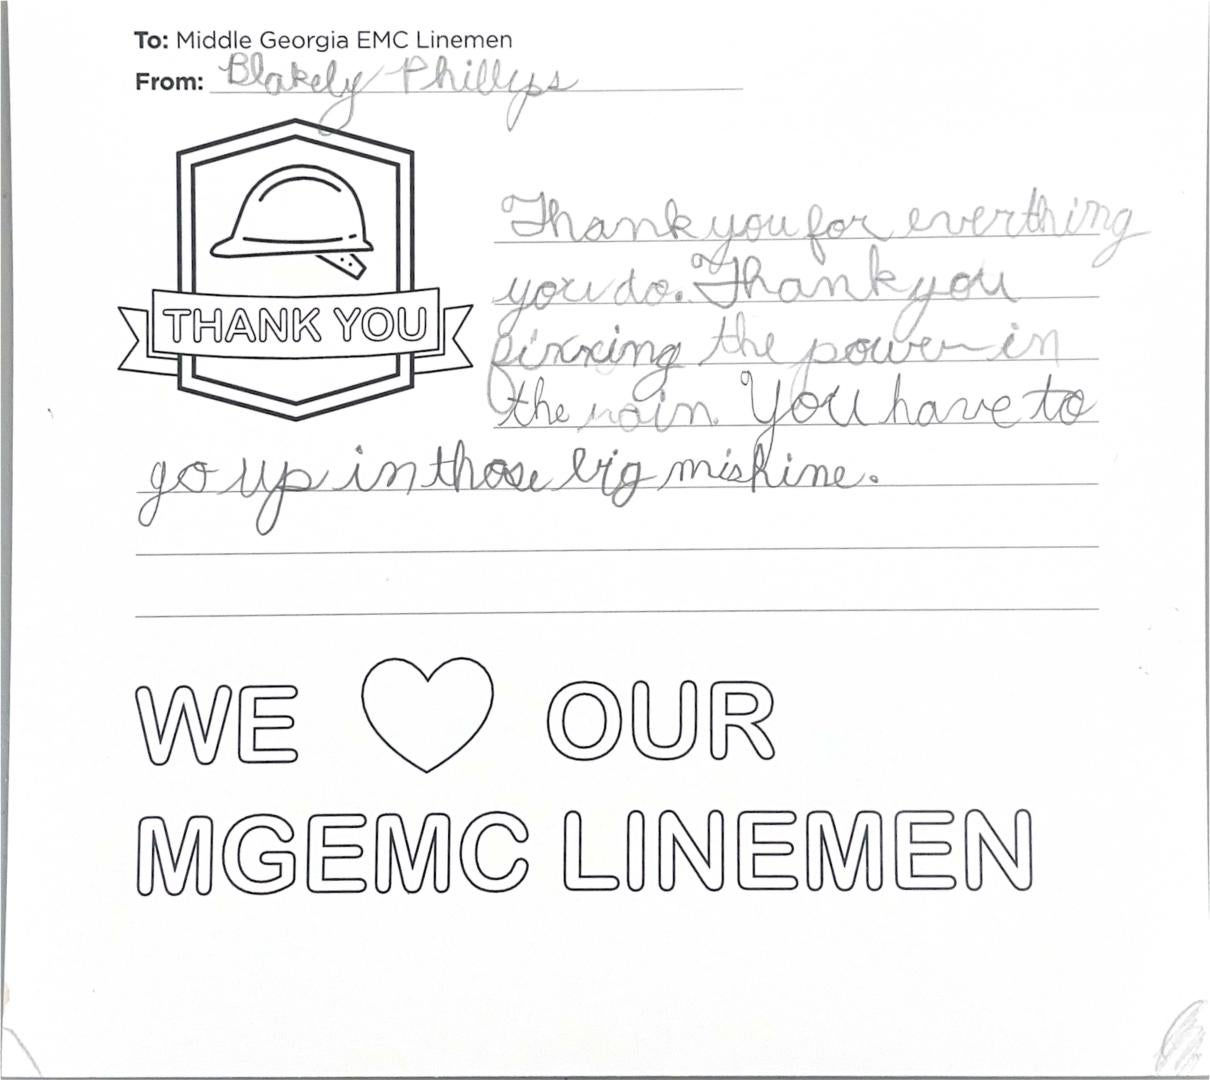 To: Middle Georgia EMC Linemen
From: Blakely Phillips
THANK YOU
Thank you for everthing
you do. Thank you
fixxing the power in
the rain. You have to
go up in those big mishine.
WE OUR
MGEMC LINEMEN